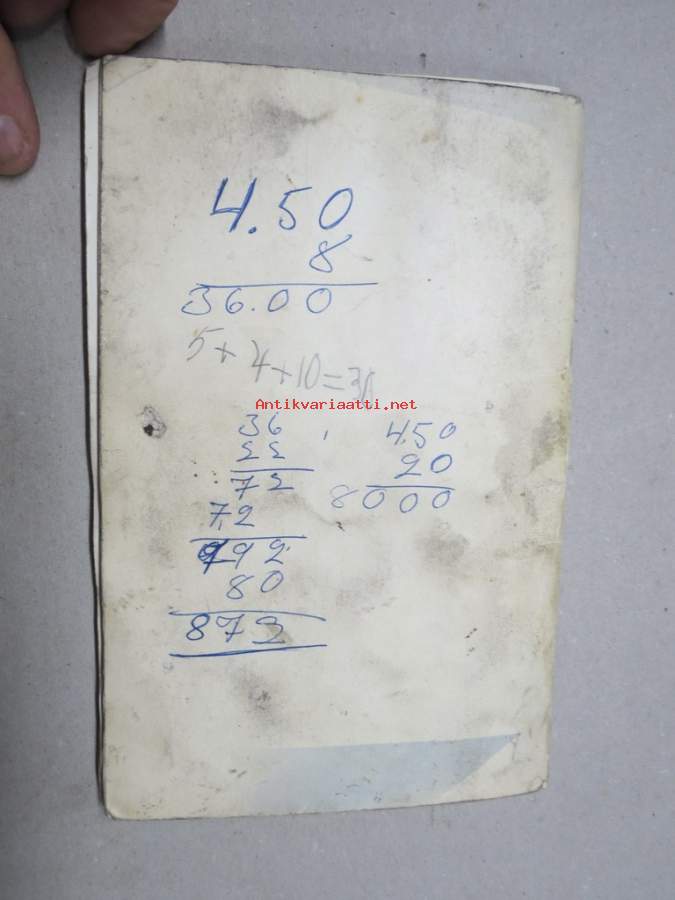 4.50
8
36.00
5+4+10=38
Antikvariaatti.net
36
22
72
72
792
80
873
4.50
20
8000